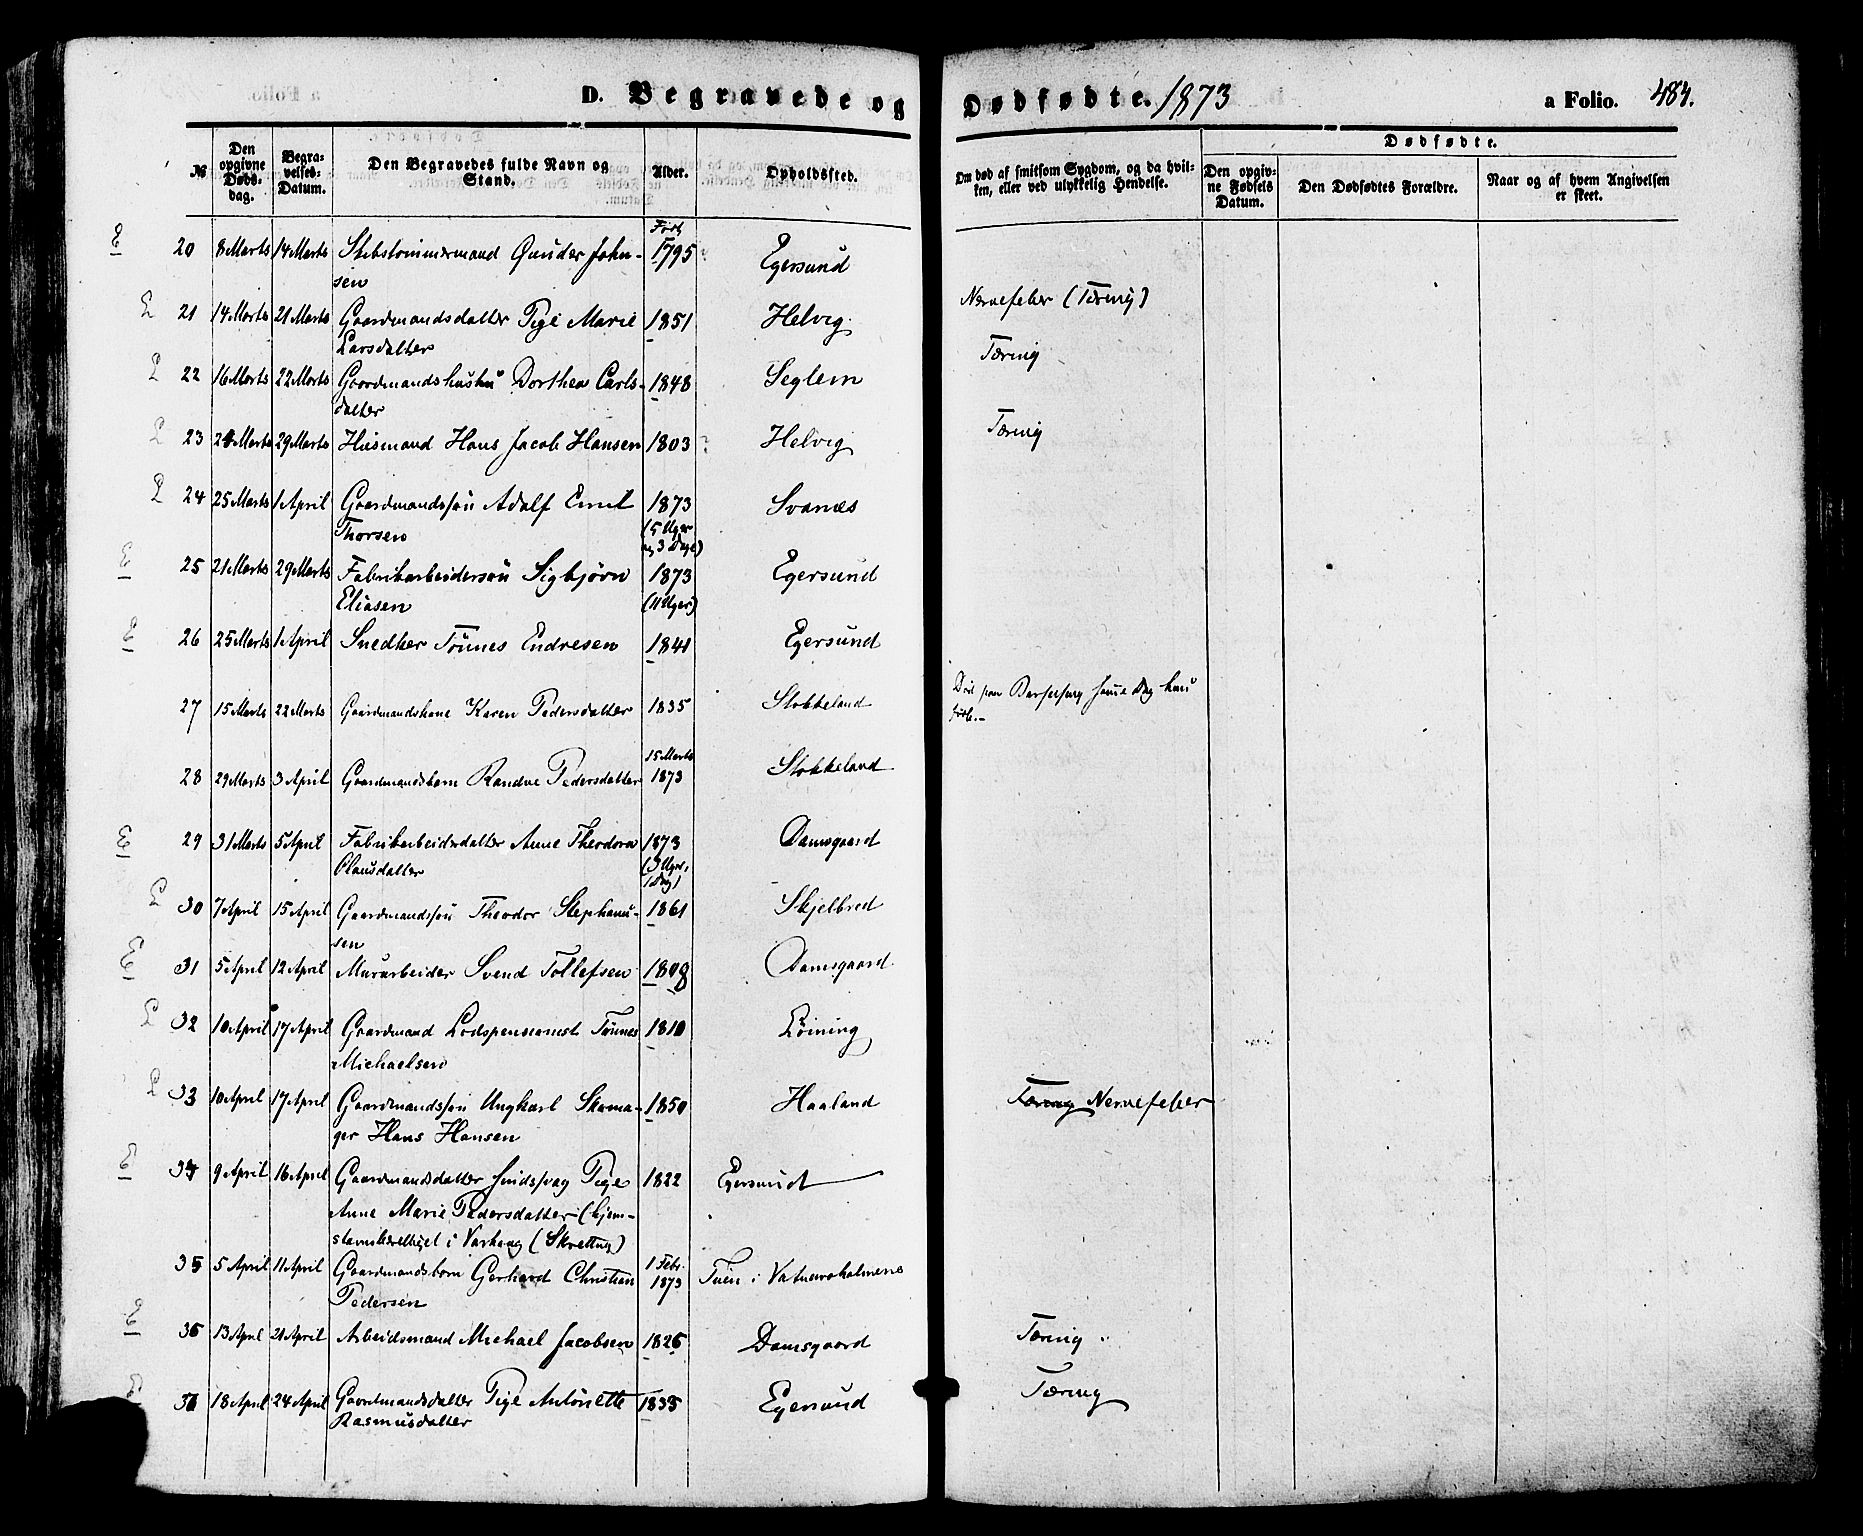 D. Begravede og Dødfødte. 1873 a Folio. 484.
№ Den opgivne Døds-dag. Begra-velses-Datum. Den Begravedes fulde Navn og Stand. Alder. Opholdssted. Om død af smitsom Sygdom, og da hvil-ken, eller ved ulykkelig Hendelse. Dødfødte. Den opgiv-ne Fødsels Datum. Den Dødfødtes Forældre. Naar og af hvem Angivelsen er skeet.
E 20 8 Marts 14 Marts Skibstømmermand Gunder John- 1795 Egersund
sen
21 14 Marts 21 Marts Gaardmandsdatter Pige Marie 1851 Helvig Nervefeber (Tæring)
Larsdatter
22 16 Marts 22 Marts Gaardmandshustru Dorthea Carls- 1848 Seglem Tæring
datter
23 24 Marts 29 Marts Husmand Hans Jacob Hansen 1803 Helvig Tæring
24 25 Marts 1 April Gaardmandssøn Adolf Emil 1873 Svanes
Thorsen (5 Uger og 3 Dage)
E 25 21 Marts 29 Marts Fabrikarbeidersøn Sigbjørn 1873 Egersund
Eliasen (11 Uger)
E 26 25 Marts 1 April Snedker Tønnes Endresen 1841 Egersund
27 15 Marts 22 Marts Gaardmandskone Karen Pedersdatter 1835 Stokkeland Død paa Barselseng samme Dag hun
15 Marts
28 29 Marts 3 April Gaardmandsbarn Randve Pedersdatter 1873 Stokkeland
E 29 31 Marts 5 April Fabrikarbeiderdatter Anne Theodora 1873 Damsgaard
Olausdatter (3 Uger, 1 Dag)
30 7 April 15 April Gaardmandssøn Theodor Stephanu- 1861 Skjelbred
sen
E 31 5 April 12 April Murarbeider Svend Tollefsen 1808 Damsgaard
32 10 April 17 April Gaardmand Lodspensionist Tønnes 1810 Løining
Michaelsen
33 10 April 17 April Gaardmandssøn Ungkarl Skoma- 1850 Haaland Tæring Nervefeber
ger Hans Hansen
E 34 9 April 16 April Gaardmandsdatter sindssvag Pige 1822 Egersund
Anne Marie Pedersdatter (hjem-
stavnsberettiget i Varhaug (Skretting)
1 Febr.
35 5 April 11 April Gaardmandsbarn Gerhard Christian 1873 Tuen i Vatnamoholmene
Pedersen
E 36 13 April 21 April Arbeidsmand Michael Jacobsen 1826 Damsgaard Tæring
E 37 18 April 24 April Gaardmandsdatter Pige Antonette 1835 Egersund Tæring
Rasmusdatter